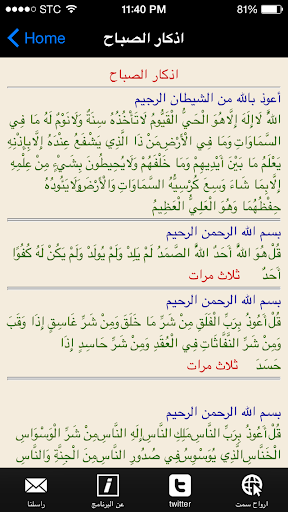 STC 11:40 PM 81%
Home اذكار الصباح
اذكار الصباح
أعوذ بالله من الشيطان الرجيم
اللهُ لاَإِلَهَ إِلاَّهُوَ الْحَيُّ الْقَيُّومُ لاَتَأْخُذُهُ سِنَةٌ وَلاَنَوْمٌ لَهُ مَا فِي
السَّمَاوَاتِ وَمَا فِي الْأَرْضِ مَنْ ذَا الَّذِي يَشْفَعُ عِنْدَهُ إِلاَّبِإِذْنِهِ
يَعْلَمُ مَا بَيْنَ أَيْدِيهِمْ وَمَا خَلْفَهُمْ وَلاَيُحِيطُونَ بِشَيْءٍ مِنْ عِلْمِهِ
إِلاَّبِمَا شَاءَ وَسِعَ كُرْسِيُّهُ السَّمَاوَاتِ وَالْأَرْضَ وَلاَيَئُودُهُ
حِفْظُهُمَا وَهُوَ الْعَلِيُّ الْعَظِيمُ
بسم الله الرحمن الرحيم
قُلْ هُوَ اللهُ أَحَدٌ اللهُ الصَّمَدُ لَمْ يَلِدْ وَلَمْ يُولَدْ وَلَمْ يَكُنْ لَهُ كُفُوًا
أَحَدٌ ثلاث مرات
بسم الله الرحمن الرحيم
قُلْ أَعُوذُ بِرَبِّ الْفَلَقِ مِنْ شَرِّ مَا خَلَقَ وَمِنْ شَرِّ غَاسِقٍ إِذَا وَقَبَ
وَمِنْ شَرِّ النَّفَّاثَاتِ فِي الْعُقَدِ وَمِنْ شَرِّ حَاسِدٍ إِذَا
حَسَدَ ثلاث مرات
بسم الله الرحمن الرحيم
قُلْ أَعُوذُ بِرَبِّ النَّاسِ مَلِكِ النَّاسِ إِلَهِ النَّاسِ مِنْ شَرِّ الْوَسْوَاسِ
الْخَنَّاسِ الَّذِي يُوَسْوِسُ فِي صُدُورِ النَّاسِ مِنَ الْجِنَّةِ وَالنَّاسِ
ارواح سمت twitter عن البرنامج راسلنا